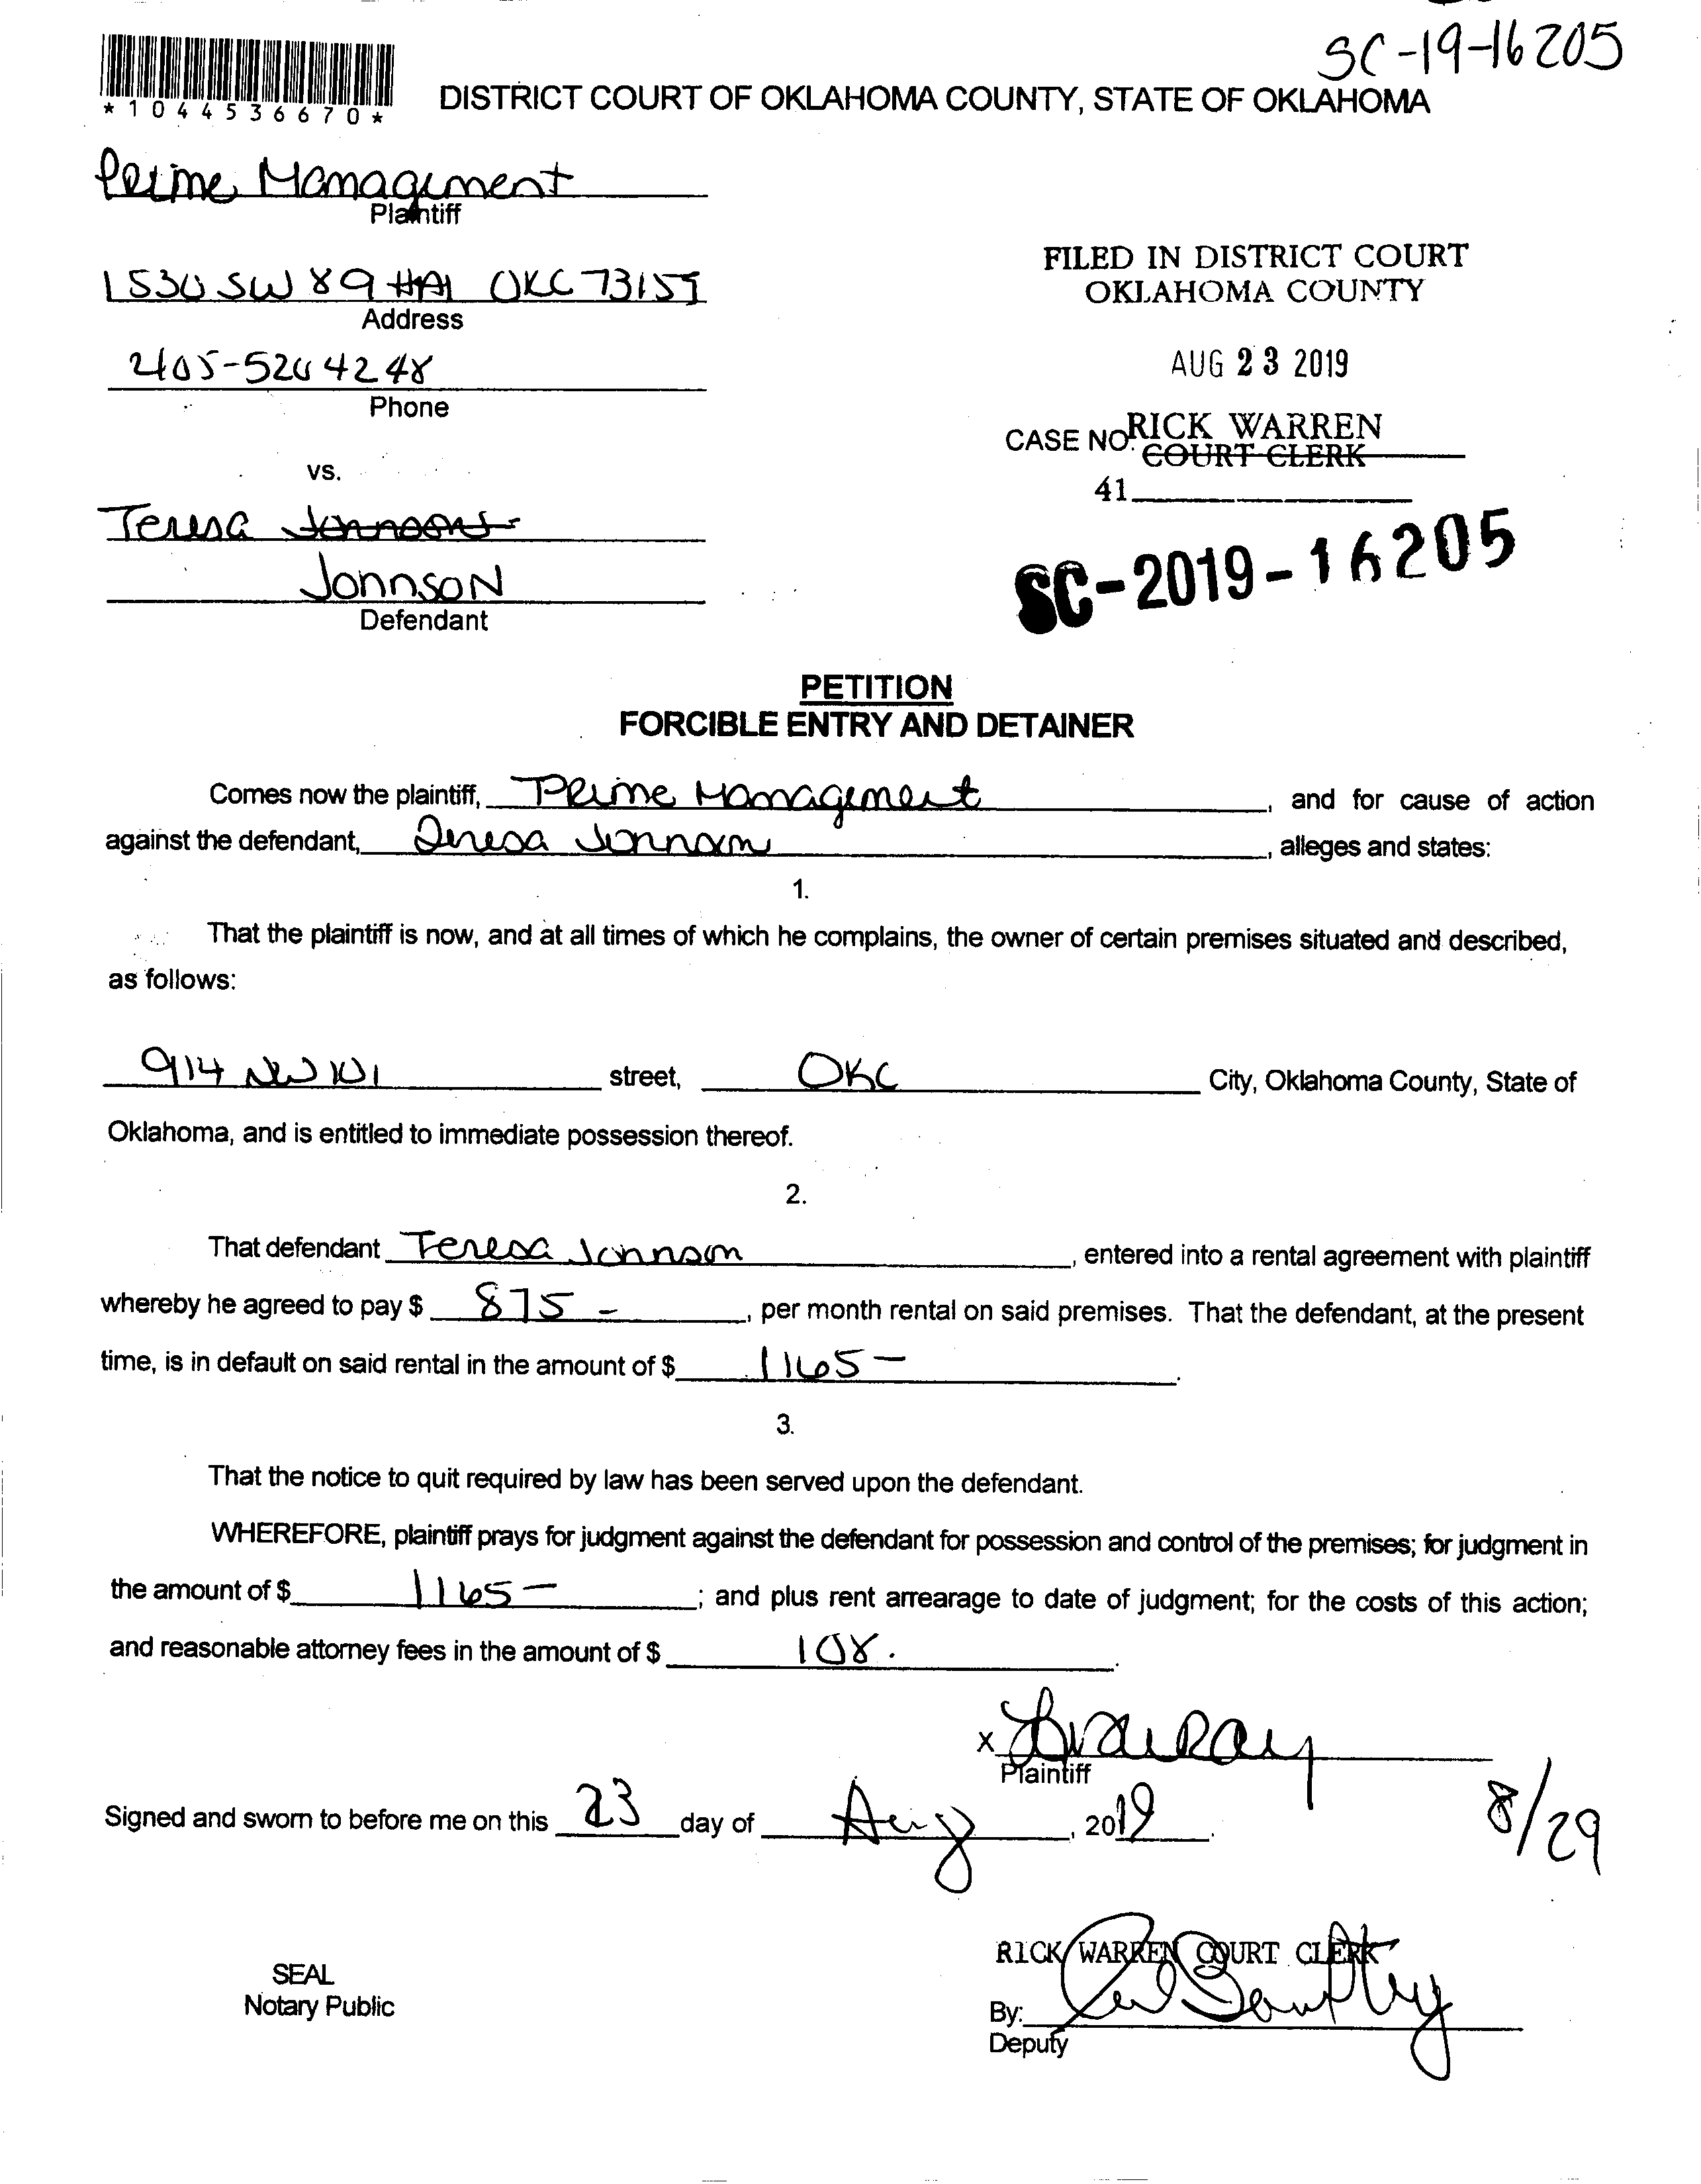 SC-19-16205
*1044536670*
DISTRICT COURT OF OKLAHOMA COUNTY, STATE OF OKLAHOMA
Prime Management
Plaintiff
1530 SW 89 #A1 OKC 73159
Address
405-520 4248
Phone
vs.
Teresa Johnson
Johnson
Defendant
FILED IN DISTRICT COURT
OKLAHOMA COUNTY
AUG 23 2019
RICK WARREN
CASE NO. COURT CLERK
41
SC-2019-16205
PETITION
FORCIBLE ENTRY AND DETAINER
Comes now the plaintiff, Prime Management, and for cause of action
against the defendant, Teresa Johnson, alleges and states:
1.
That the plaintiff is now, and at all times of which he complains, the owner of certain premises situated and described,
as follows:
914 NW 101 street, OKC City, Oklahoma County, State of
Oklahoma, and is entitled to immediate possession thereof.
2.
That defendant Teresa Johnson, entered into a rental agreement with plaintiff
whereby he agreed to pay $ 875 -, per month rental on said premises. That the defendant, at the present
time, is in default on said rental in the amount of $ 1165 -.
3.
That the notice to quit required by law has been served upon the defendant.
WHEREFORE, plaintiff prays for judgment against the defendant for possession and control of the premises; for judgment in
the amount of $ 1165 -; and plus rent arrearage to date of judgment; for the costs of this action;
and reasonable attorney fees in the amount of $ 108..
X
Plaintiff
Signed and sworn to before me on this 23 day of Aug, 2019.
8/29
SEAL
Notary Public
RICK WARREN COURT CLERK
By:
Deputy